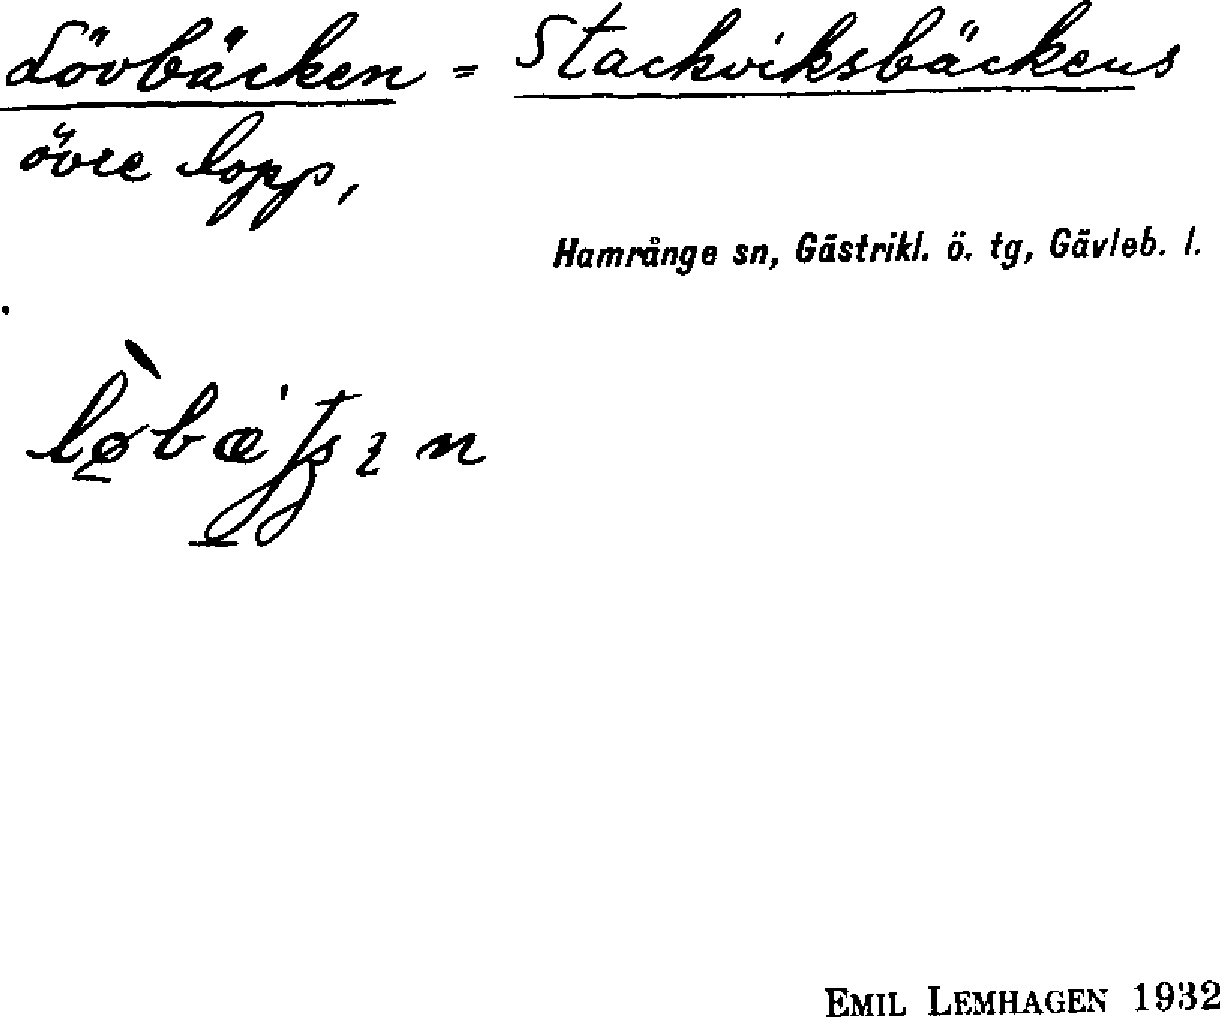 Lövbäcken = Stackviksbäckens
övre lopp,
Hamrånge sn, Gästrikl. ö. tg, Gävleb. l.
EMIL LEMHAGEN 1932